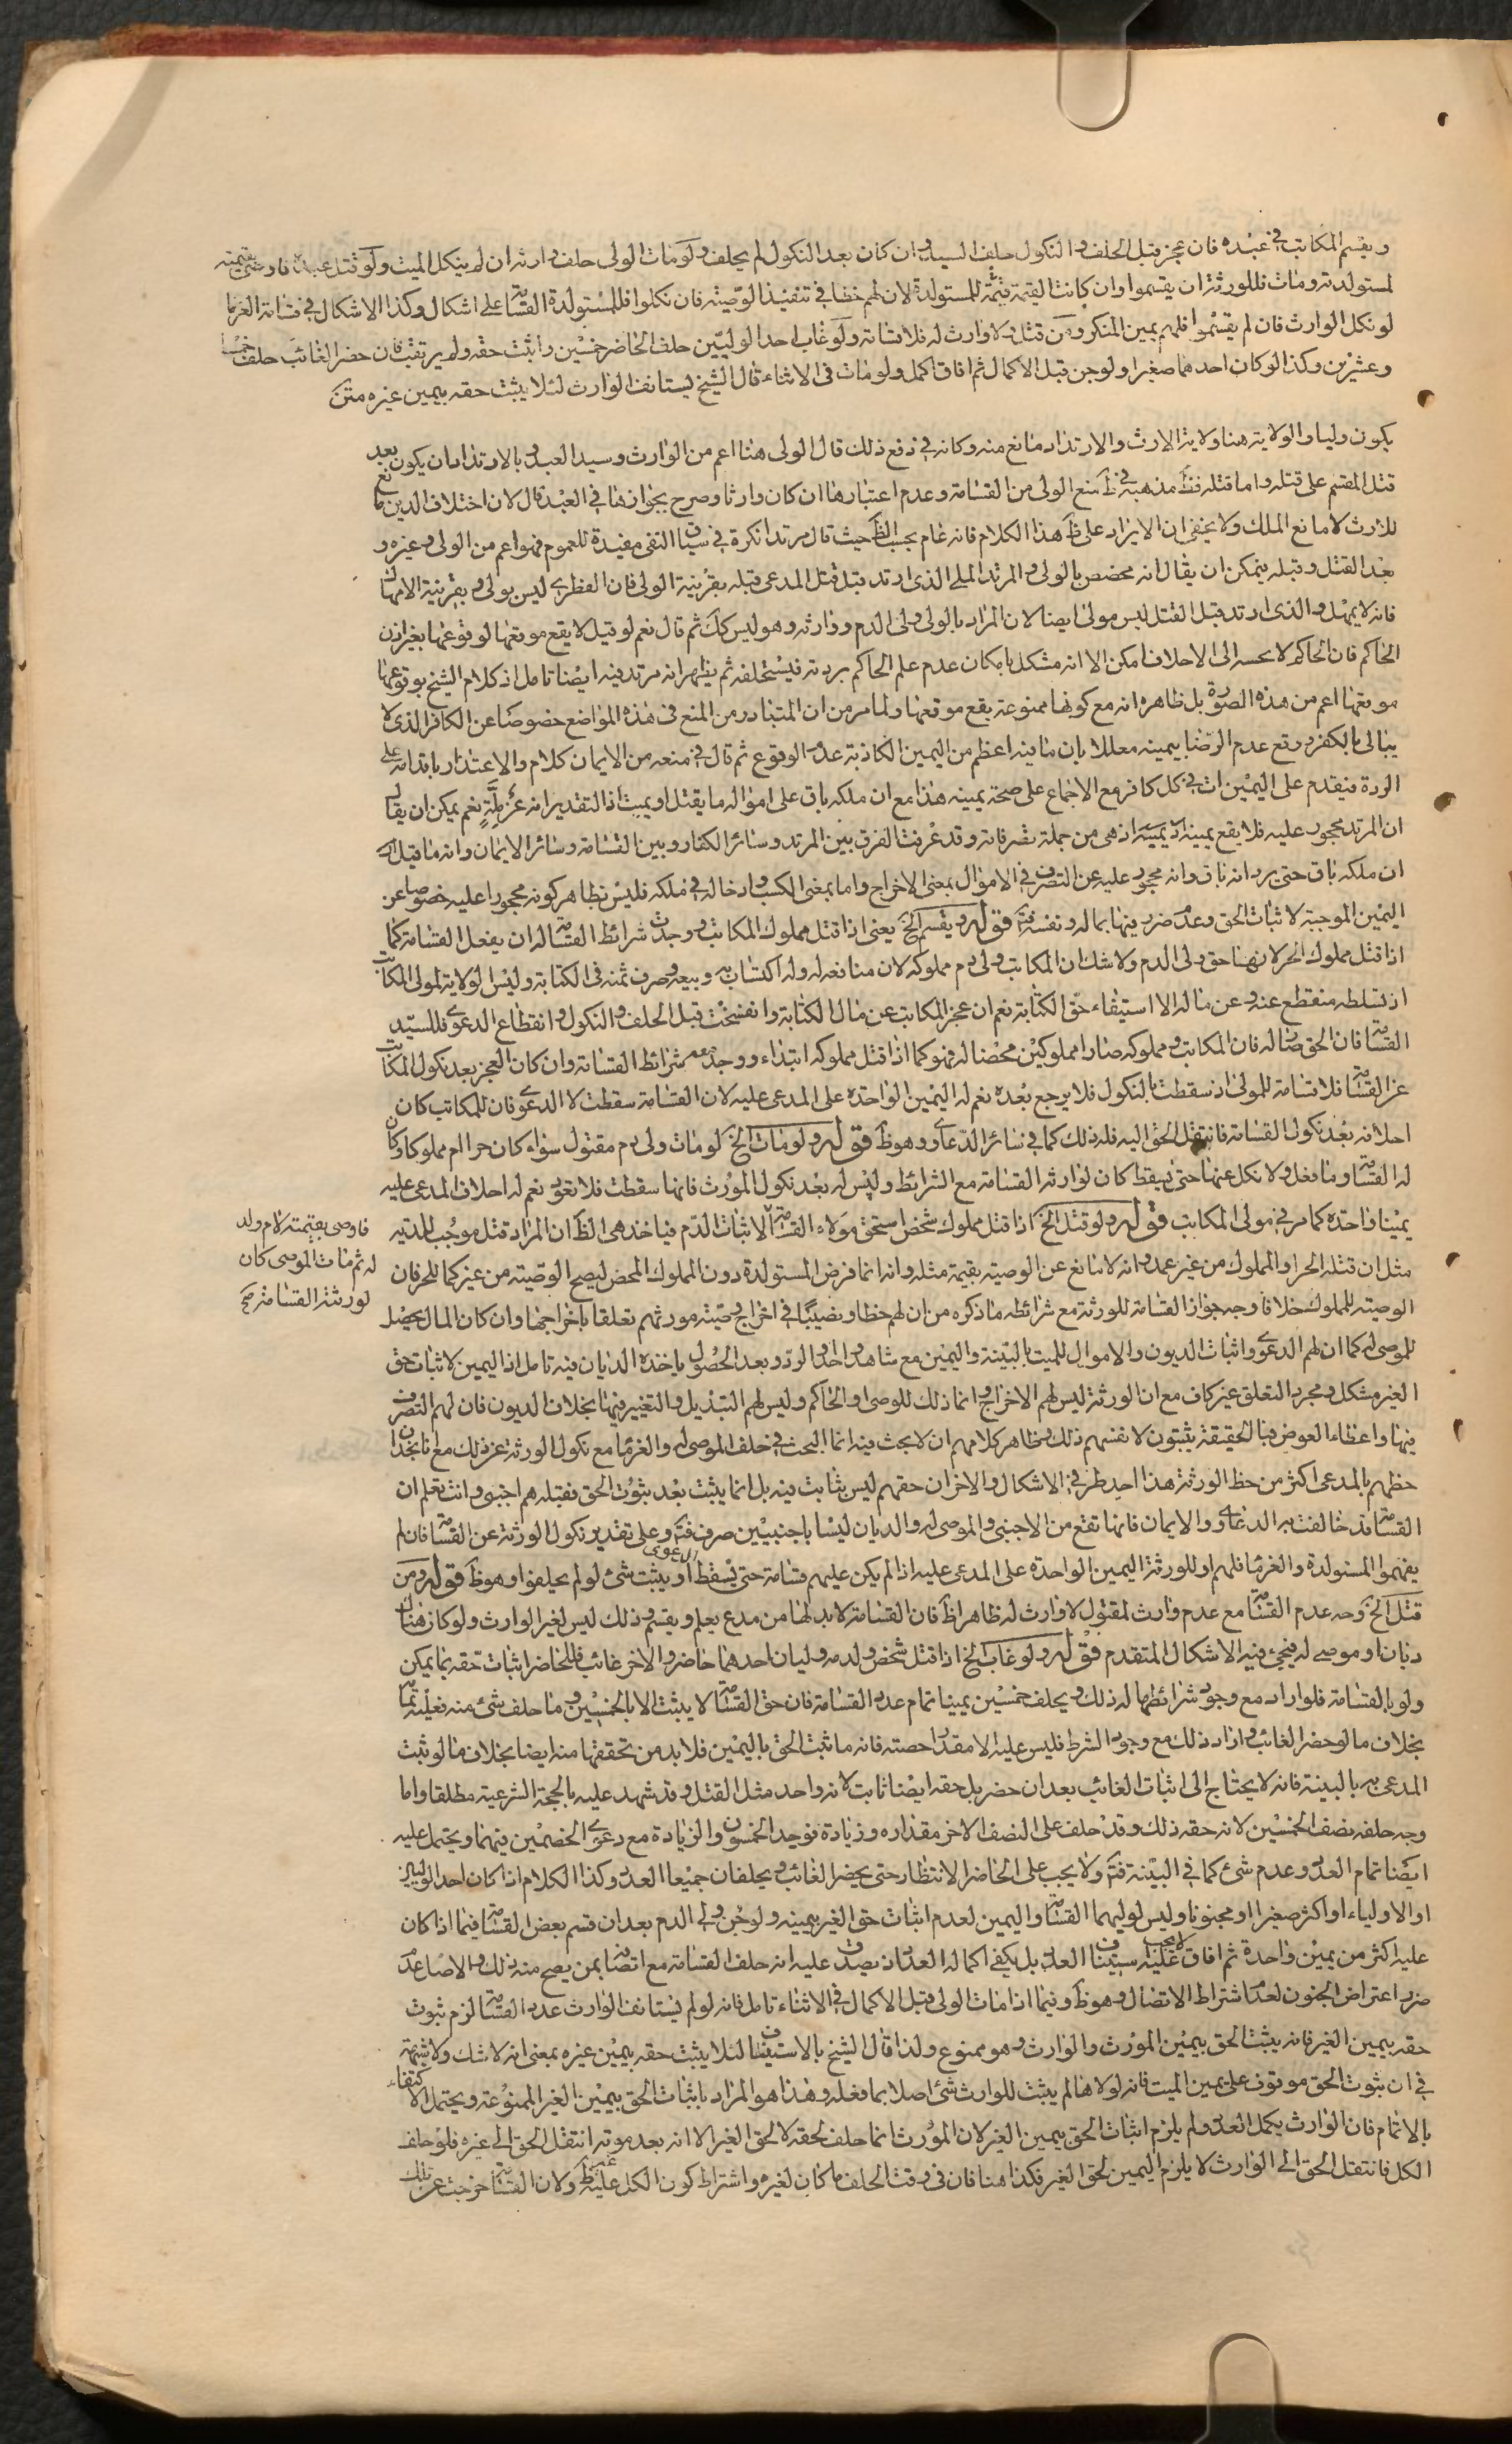 ويقسم المكاتب في عبده فان عجز قبل الحلف والنكول حلف السيد وان كان بعد النكول لم يحلف ولو مات الولى حلف وارثه ان لم ينكل الميت ولو قتل عبده فاوصى بقيمته
لمستولدته ومات فللورثة ان يقسموا وان كانت القيمة للمستولدة لان لهم حظا في تنفيذ الوصية فان نكلوا فللمستولدة القسامة على اشكال وكذا الاشكال في قسامة الغرما
لو نكل الوارث فان لم يقسموا فلهم يمين المنكر ومن قتل ولا وارث له فلا قسامة ولو غاب احد الوليين حلف الحاضر خمسين واثبت حقه ولم يرتقب فان حضر الغائب حلف خمسا
وعشرين وكذا لو كان احدهما صغيرا ولو جن قبل الاكمال ثم افاق اكمل ولو مات في الاثناء قال الشيخ يستانف الوارث لئلا يثبت حقه بيمين غيره متن
يكون وليا والولاية هنا ولاية الارث والارتداد مانع منه وكانه في دفع ذلك قال الولى هنا اعم من الوارث وسيد العبد وبالارتداد ان يكون بعد
قتل المقسم على قتله واما قتله فظ مذهبه في ط منع الولى من القسامة وعدم اعتبارها ان كان وارثا وصرح بجوازها في العبد قال لان اختلاف الدين مانع
للارث لا مانع الملك ولا يخفى ان الايراد على ظ هذا الكلام فانه عام بحسب الظ حيث قال مرتدا نكرة في سياق النفى مفيدة للعموم فهو اعم من الولى وغيره و
بعد القتل وقبله فيمكن ان يقال انه مخصص بالولى والمرتد الملى الذى ارتد قبل قتل المدعى قبله بقرينة الولى فان الفطرى ليس بولى وبقرينة الامهال
فانه لا يمهل والذى ارتد قبل القتل ليس مولى ايضا لان المراد بالولى ولى الدم ووارثه وهو ليس كك ثم قال نعم لو قيل لا يقع موقعها لوقوعها بغير اذن
الحاكم فان الحاكم لا الى الاحلاف امكن الا انه مشكل بامكان عدم علم الحاكم بردته فيستحلفه ثم يظهر انه مرتد فيه ايضا تامل اذ كلام الشيخ بوقوعها
موقعها اعم من هذه الصورة بل ظاهره انه مع كونها ممنوعة يقع موقعها ولما مر من ان المتبادر من المنع في هذه المواضع خصوصا عن الكافر الذى لا
يبالى بالكفر وقع عدم الرضا بيمينه معللا بان ما فيه اعظم من اليمين الكاذبة عدم الوقوع ثم قال في منعه من الايمان كلام والاعتذار باقدامه على
الردة فيقدم على اليمين ات في كل كافر مع الاجماع على صحة يمينه هذا مع ان ملكه باق على امواله ما يقتل او يميت اذ التقدير انه عن ملة نعم يمكن ان يقال
ان المرتد محجور عليه فلا يقع يمينه اذ يمينه اذ هى من جملة تصرفاته وقد عرفت الفرق بين المرتد وسائر الكفار وبين القسامة وسائر الايمان وانه ما قيل
ان ملكه باق حتى يرد انه باق وانه محجور عليه عن التصرف في الاموال بمعنى الاخراج واما بمعنى الكسب وادخاله في ملكه فليس بظاهر كونه محجورا عليه خصوصا عن
اليمين الموجبة لاثبات الحق وعدم ضرر فيها بماله ونفسه فت قوله ويقسم الخ يعنى اذا قتل مملوك المكاتب ووجدت شرائط القسامة له ان يفعل القسامة كما
اذا قتل مملوك الحر لان هنا حق ولى الدم ولا شك ان المكاتب ولى دم مملوكه لان منافعه له وله اكتسابه وبيعه وصرف ثمنه في الكتابة وليس الولاية لمولى المكاتب
اذ تسلطه منقطع عنه وعن ماله الا استيفاء حق الكتابة نعم ان عجز المكاتب عن مال الكتابة وانفسخت قبل الحلف والنكول وانقطاع الدعوى فللسيد
القسامة فان الحق صار له فان المكاتب ومملوكه صارا مملوكين محضا له فهو كما اذا قتل مملوكه ابتداء ووجد معه شرائط القسامة وان كان العجز بعد نكول المكاتب
عن القسامة فلا قسامة للمولى اذ سقطت بالنكول فلا يرجع بعده نعم له اليمين الواحدة على المدعى عليه لان القسامة سقطت لا الدعوى فان للمكاتب كان
احلافه بعد نكول القسامة فانتقل الحق اليه فله ذلك كما في سائر الدعاوى وهو ظ قوله ولو مات الخ لو مات ولى دم مقتول سواء كان حرا ام مملوكا وكان
له القسامة وما فعل ولا نكل عنها حتى يسقط كان لوارثه القسامة مع الشرائط وليس له بعد نكول المورث فانها سقطت فلا تعود نعم له احلاف المدعى عليه
يمينا واحدة كما مر في مولى المكاتب قوله ولو قتل الخ اذا قتل مملوك شخص استحق مولاه القسامة لاثبات الدم فياخذ هى الظ ان المراد قتل موجب للدية
فاوصى بقيمته لام ولد
له ثم مات الموصى كان
لورثته القسامة صح
مثل ان قتله الحر او المملوك من غير عمد وانه لا مانع عن الوصية بقيمة مثله وانه انما فرض المستولدة دون المملوك المحض ليصح الوصية من غير كما للحر فان
الوصية للمملوك خلافا وجه جواز القسامة للورثة مع شرائطه ما ذكره من ان لهم حظا ونصيبا في اخراج وصية مورثهم تعلقا باخراجها وان كان المال يحصل
للموصى له كما ان لهم الدعوى واثبات الديون والاموال للميت بالبينة واليمين مع شاهد واحد والرد وبعد الحصول ياخذه الديان فيه تامل اذ اليمين لاثبات حق
الغير مشكل ومجرد التعلق غير كاف مع ان الورثة ليس لهم الاخراج وانما ذلك للوصى او الحاكم وليس لهم التبديل والتغيير فيها بخلاف الديون فان لهم التصرف
فيها واعطاء العوض فبالحقيقة يثبتون لانفسهم ذلك وظاهر كلامهم ان لا بحث فيه انما البحث في حلف الموصى له والغرما مع نكول الورثة عن ذلك مع انا نجد ان
حظهم بالمدعى اكثر من حظ الورثة هذا احد طرفي الاشكال والاخر ان حقهم ليس بثابت فيه بل انما يثبت بعد ثبوت الحق فقبله هم اجنبى وانت تعلم ان
القسامة قد خالفت به الدعاوى والايمان فانها تقع من الاجنبى والموصى له والديان ليسا باجنبيين صرف فت وعلى تقدير نكول الورثة عن القسامة فان لم
يقسموا المستولدة والغرما فلهم او للورثة اليمين الواحدة على المدعى عليه اذ الم يكن عليهم قسامة حتى يسقط الدعوى او يثبت شئ لو لم يحلفوا وهو ظ قوله ومن
قتل الخ وجه عدم القسامة مع عدم وارث لمقتول لا وارث له ظاهرا ظ فان القسامة لابد لها من مدع يعلم ويقسم وذلك ليس لغير الوارث ولو كان هناك
ديان او موصى له فيجئ فيه الاشكال المتقدم قوله ولو غاب الخ اذا قتل شخص ولدمه وليان احدهما حاضر والاخر غائب فللحاضر اثبات حقه بما يمكن
ولو بالقسامة فلو اراد مع وجود شرائطها له ذلك ويحلف خمسين يمينا تمام عدد القسامة فان حق القسامة لا يثبت الا بالخمسين وما حلف شئ منه فعليه تمامه
بخلاف ما لو حضر الغائب واراد ذلك مع وجود الشرط فليس عليه الا مقدار حصته فانه ما ثبت الحق باليمين فلا بد من تحققها منه ايضا بخلاف ما لو ثبت
المدعى به بالبينة فانه لا يحتاج الى اثبات الغائب بعد ان حضر بل حقه ايضا ثابت لانه واحد مثل القتل وقد شهد عليه بالحجة الشرعية مطلقا واما
وجه حلفه نصف الخمسين لانه حقه ذلك وقد حلف على النصف الاخر مقداره وزيادة فوجد الخمسون والزيادة مع دعوى الخصمين فيهما ويحتمل عليه
ايضا تمام العدد وعدم شئ كما في البينة فت ولا يجب على الحاضر الانتظار حتى يحضر الغائب ويحلفان جميعا العدد وكذا الكلام اذا كان احد الوليين
او الاولياء او اكثر صغيرا او مجنونا وليس لوليهما القسامة واليمين لعدم اثبات حق الغير بيمينه ولو جن ولى الدم بعد ان قسم بعض القسامة فيما اذا كان
عليه اكثر من يمين واحدة ثم افاق لا يجب عليه استيناف العدد بل يكفى اكماله العدد اذ يصدق عليه انه حلف القسامة مع اتصافه بمن يصح منه ذلك والاصل عدم
ضرر اعتراض الجنون لعدم اشتراط الاتصال وهو ظ وفيما اذا مات الولى قبل الاكمال في الاثناء تامل فانه لو لم يستانف الوارث عدد القسامة لزم ثبوت
حقه بيمين الغير فانه يثبت الحق بيمين المورث والوارث وهو ممنوع ولذا قال الشيخ بالاستيناف لئلا يثبت حقه بيمين غيره بمعنى انه لا شك ولا شبهة
في ان ثبوت الحق موقوف على يمين الميت فانه لولاها لم يثبت للوارث شئ اصلا بما فعله وهذا هو المراد باثبات الحق بيمين الغير الممنوعة ويحتمل الاكتفاء
بالاتمام فان الوارث يكمل العدد ولم يلزم اثبات الحق بيمين الغير لان المورث انما حلف لحقه لا لحق الغير الا انه بعد موته انتقل الحق الى غيره فلو حلف
الكل فانتقل الحق الى الوارث لا يلزم اليمين لحق الغير فكذا هنا فان في وقت الحلف ما كان لغيره واشتراط كون الكل عليه غير ظ ولان القسامة خرجت عن تلك